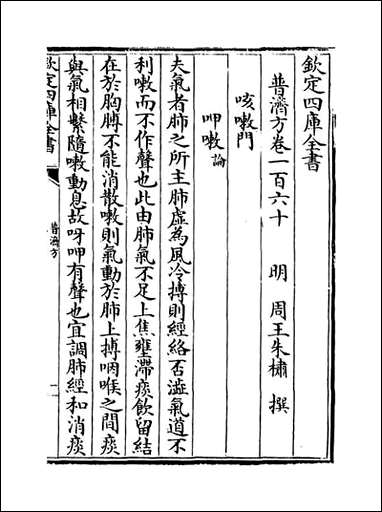 欽定四庫全書
普濟方卷一百六十
明 周王朱橚 撰
咳嗽門
呷嗽論
夫氣者肺之所主肺虛為風冷搏則經絡否澁氣道不
利嗽而不作聲也此由肺氣不足上焦壅滯痰飲留結
在於胸膊不能消散嗽則氣動於肺上搏咽喉之間痰
與氣相繫隨嗽動息故呀呷有聲也宜調肺經和消痰
欽定四庫全書
普濟方
一